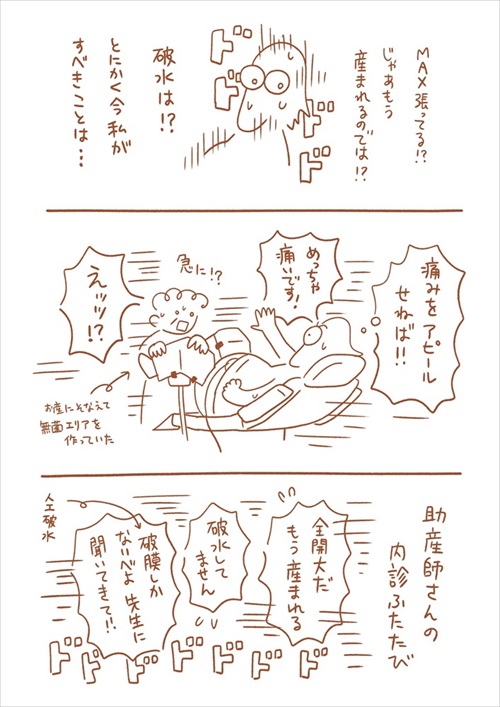 MAX張ってる!?
じゃあもう
産まれるのでは!?
ドドドド
破水は!?
とにかく今私が
すべきことは…
痛みをアピール
せねば!!
めっちゃ
痛いです!
急に!?
えッッ!?
お産にそなえて
無菌エリアを
作っていた
助産師さんの
内診ふたたび
全開大だ
もう産まれる
破水して
ません
破膜しか
ないべよ先生に
聞いてきて!!
人工破水
ドドドドドド